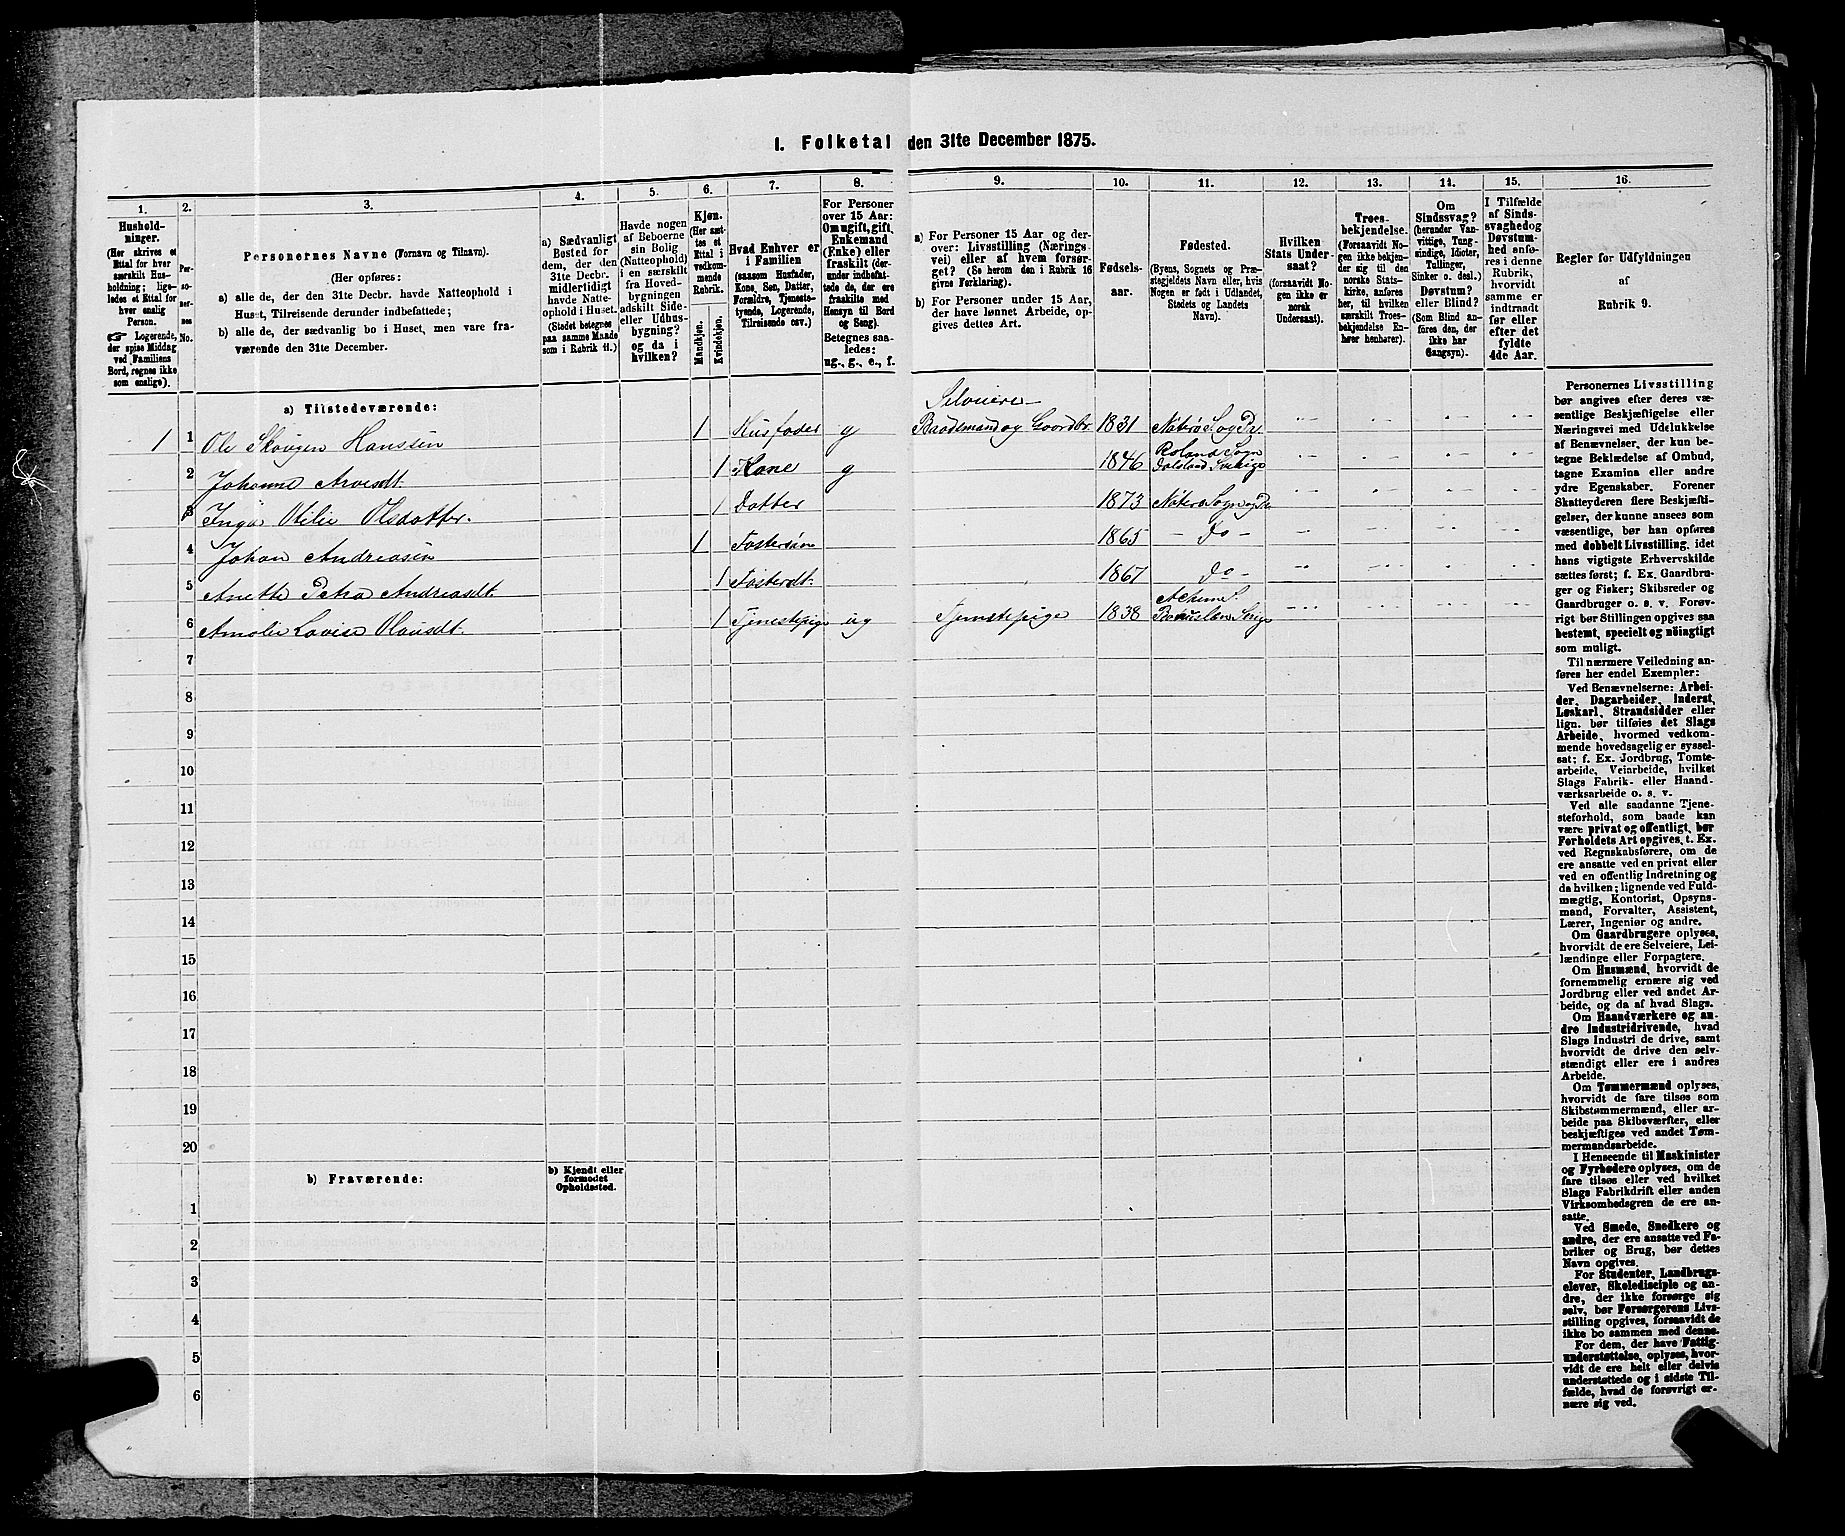 I. Folketal den 31te December 1875.
1. 2. 3. 4. 5. 6. 7. 8. 9. 10. 11. 12. 13. 14. 15. 16.
Hushold-
ninger.
(Her skrives et
Ettal for hver
særskilt Hus-
holdning; lige-
ledes et Ettal for
hver enslig
Person.
☞ Logerende,
der spise Middag
ved Familiens
Bord, regnes ikke
som enslige).
Per-
so-
ner-
nes
No.
Personernes Navne (Fornavn og Tilnavn).
(Her opføres:
a) alle de, der den 31te Decbr. havde Natteophold i
Huset, Tilreisende derunder indbefattede;
b) alle de, der sædvanlig bo i Huset, men vare fra-
værende den 31te December.
a) Sædvanligt
Bosted for
dem, der den
31te Decbr.
midlertidigt
havde Natte-
ophold i Huset.
(Stedet betegnes
paa samme Maade
som i Rubrik 11.)
Havde nogen
af Beboerne
sin Bolig
(Natteophold)
i en særskilt
fra Hoved-
bygningen
adskilt Side-
eller Udhus-
bygning?
og da i
hvilken?
Kjøn.
(Her sæt-
tes et
Ettal i
vedkom-
mende
Rubrik.
Mandkjøn.
Kvindekjøn.
Hvad Enhver er
i Familien
(saasom Husfader,
Kone, Søn, Datter,
Forældre, Tjeneste-
tyende, Logerende,
Tilreisende osv.)
For Personer
over 15 Aar:
Om ugift, gift,
Enkemand
(Enke) eller
fraskilt (der-
under indbefat-
tede de, der ere
fraskilte med
Hensyn til Bord
og Seng).
Betegnes saa-
ledes:
ug., g., e., f.
a) For Personer 15 Aar og der-
over: Livsstilling (Nærings-
vei) eller af hvem forsør-
get? (Se herom den i Rubrik 16
givne Forklaring).
b) For Personer under 15 Aar,
der have lønnet Arbeide, op-
gives dettes Art.
Fødsels-
aar.
Fødested.
(Byens, Sognets og Præ-
stegjeldets Navn eller, hvis
Nogen er født i Udlandet,
Stedets og Landets
Navn).
Hvilken
Stats Under-
saat?
(forsaavidt No-
gen ikke er
norsk
Undersaat).
Troes-
bekjendelse.
(Forsaavidt No-
gen ikke bekjen-
der sig til den
norske Stats-
kirke, anføres
her, til hvilken
særskilt Troes-
bekjendelse En-
hver henhører).
Om
Sindssvag?
(herunder Van-
vittige, Tung-
sindige, Idioter,
Tullinger,
Sinker o. desl.)
Døvstum?
eller Blind?
(Som Blind an-
føres den, der
ikke har
Gangsyn).
I Tilfælde
af Sinds-
svaghed og
Døvstum-
hed anfø-
res i denne
Rubrik,
hvorvidt
samme er
indtraadt
før eller
efter det
fyldte
4de Aar.
Regler for Udfyldningen
af
Rubrik 9.
a) Tilstedeværende:
Selveiere
1 1 Ole Skougen Hanssen 1 Husfader g Baadsmand og Gaardbr. 1831
2 Johanne Arvesdt. 1 Kone g 1846 Dalsland Sverige
3 Inga Otilie Olsdatter. 1 Datter 1873
4 Johan Andreasen 1 Fostersøn 1865 - do -
5 Anette Petra Andreasdt. 1 Fosterdt. 1867 do -
6 Amalie Lovise 1 Tjenestepige ug Tjenestepige 1838
7
8
9
10
11
12
13
14
15
16
17
18
19
20
b) Fraværende:
b) Kjendt eller
formodet
Opholdssted.
1
2
3
4
5
6
Personernes Livsstilling
bør angives efter deres væ-
sentlige Beskjæftigelse eller
Næringsvei med Udelukkelse
af Benævnelser, der kun be-
tegne Beklædelse af Ombud,
tagne Examina eller andre
ydre Egenskaber. Forener
Skatteyderen flere Beskjæfti-
gelser, der kunne ansees som
væsentlige, bør han opføres
med dobbelt Livsstilling, idet
hans vigtigste Erhvervskilde
sættes først; f. Ex. Gaardbru-
ger og Fisker; Skibsreder og
Gaardbruger o. s. v. Forøv-
rigt bør Stillingen opgives saa
bestemt, specielt og nöingtigt
som muligt.
Til nærmere Veiledning an-
føres her endel Exempler:
Ved Benævnelserne: Arbei-
der, Dagarbeider, Inderst,
Løskarl, Strandsidder eller
lign. bør tilføies det Slags
Arbeide, hvormed vedkom-
mende hovedsagelig er syssel-
sat; f. Ex. Jordbrug, Tomte-
arbeide, Veiarbeide, hvilket
Slags Fabrik- eller Haand-
værksarbeide o. s. v.
Ved alle saadanne Tjene-
steforhold, som baade kan
være privat og offentligt, bør
Forholdets Art opgives, t. Ex.
ved Regnskabsførere, om de
ere ansatte ved en privat eller
ved en offentlig Indretning og
da hvilken; lignende ved Fuld-
mægtig, Kontorist, Opsyns-
mand, Forvalter, Assistent,
Lærer, Ingeniør og andre.
Om Gaardbrugere oplyses,
hvorvidt de ere Selveiere, Lei-
lændinge eller Forpagtere.
Om Husmænd, hvorvidt de
fornemmelig ernære sig ved
Jordbrug eller ved andet Ar-
beide, og da af hvad Slags.
Om Haandværkere og an-
dre Industridrivende, hvad
Slags Industri de drive, samt
hvorvidt de drive den selv-
stændigt eller ere i andres
Arbeide.
Om Tømmermænd oplyses,
hvorvidt de fare tilsøs som
Skibstømmermænd, eller ar-
beide paa Skibsværfter, eller
beskjæftiges ved andet Tøm-
mermandsarbeide.
I Henseende til Maskinister
og Fyrbødere oplyses, om de
fare tilsøs eller ved hvilket
Slags Fabrikdrift eller anden
Virksomhedsgren de ere an-
satte.
Ved Smede, Snedkere og
andre, der ere ansatte ved Fa-
briker og Brug, bør dettes
Navn opgives.
For Studenter, Landbrugs-
elever, Skoledisciple og an-
dre, der ikke forsørge sig
selv, bør Forsørgerens Livs-
stilling opgives, forsaavidt de
ikke bo sammen med denne.
For dem, der have Fattig-
understøttelse, oplyses, hvor-
vidt de ere helt eller delvis
understøttede og i sidste Til-
fælde, hvad de forøvrigt er-
nære sig ved.